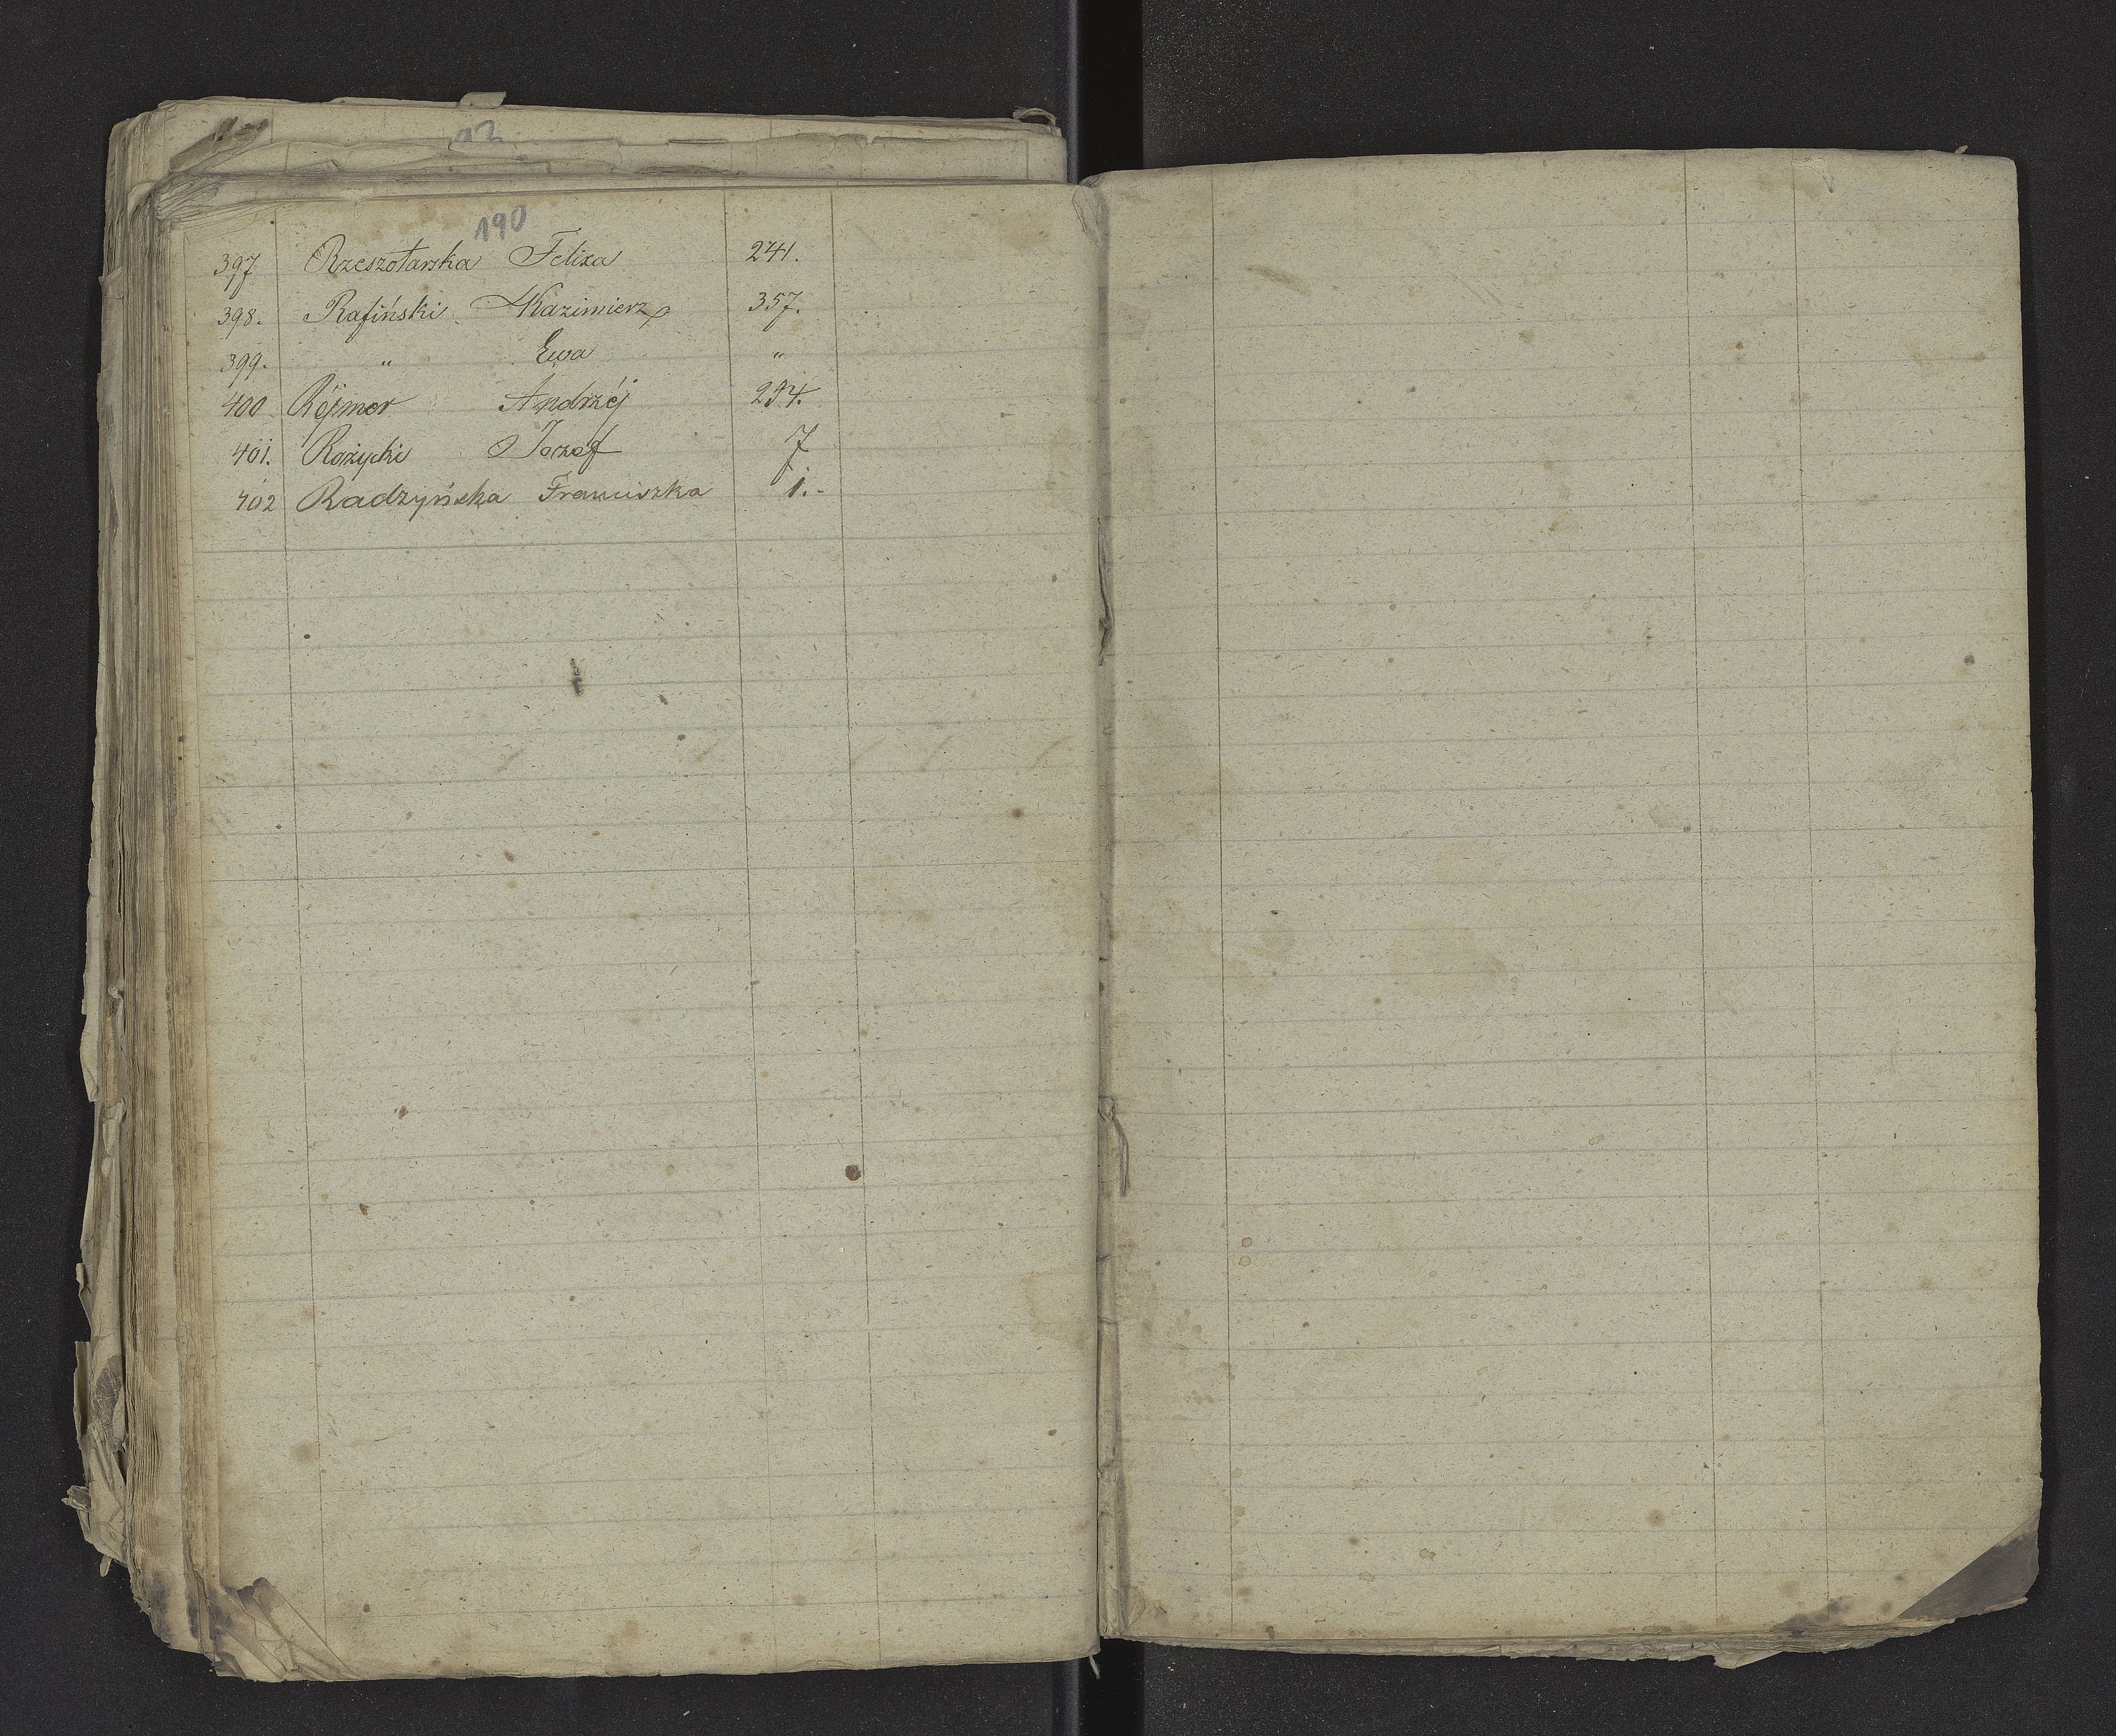 190
397 Rzeszotarska Felixa 241.
398. Rafiński Kazimierz 357.
399. " Ewa "
400 Rejmer Andrzéj 254.
401. Rożycki Jozef 7
402 Radzyńska Franciszka 1.-